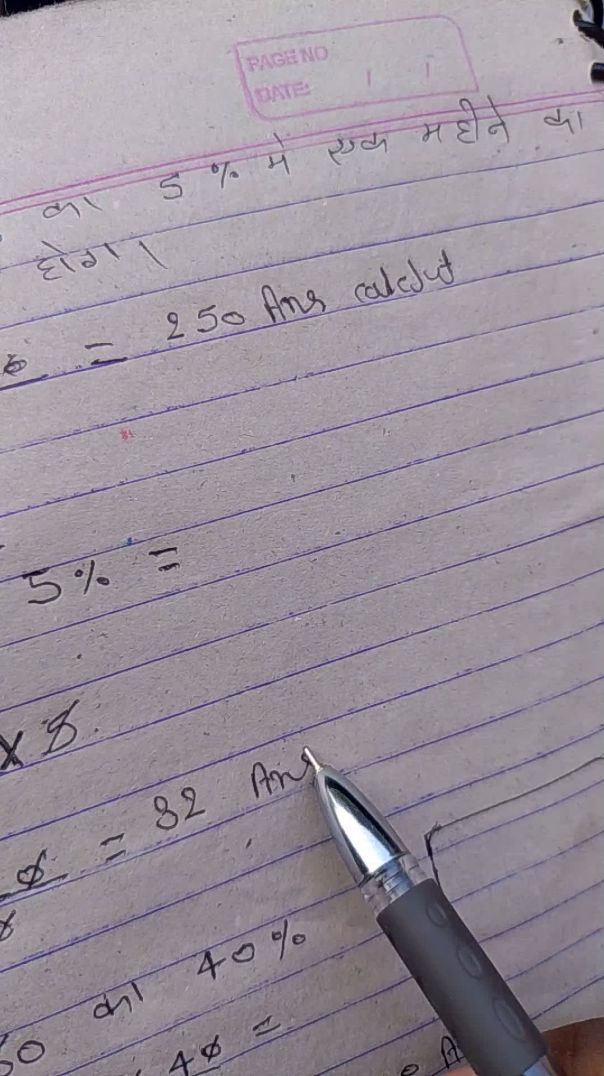 PAGE NO
DATE:
का 5 % में एक महीने का
होगा।
= 250 Ans
5% =
x 8
= 32 Ans
का 40%
40 =